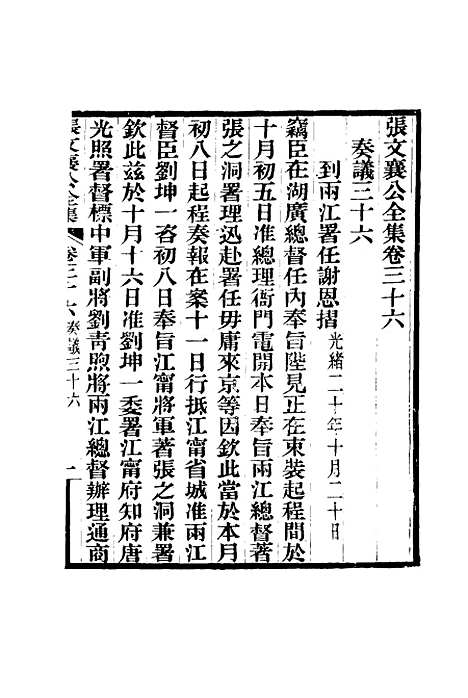 張文襄公全集卷三十六
奏議三十六
到兩江署任謝恩摺 光緒二十年十月二十日
竊臣在湖廣總督任內奉旨陛見正在束裝起程間於
十月初五日准總理衙門電開本日奉旨兩江總督著
張之洞署理迅赴署任毋庸來京等因欽此當於本月
初八日起程奏報在案十一日行抵江甯省城准兩江
督臣劉坤一咨初八日奉旨江甯將軍著張之洞兼署
欽此茲於十月十六日准劉坤一委署江甯府知府唐
光照署督標中軍副將劉青煦將兩江總督辦理通商
張文襄公全集 卷三十六 奏議三十六 一